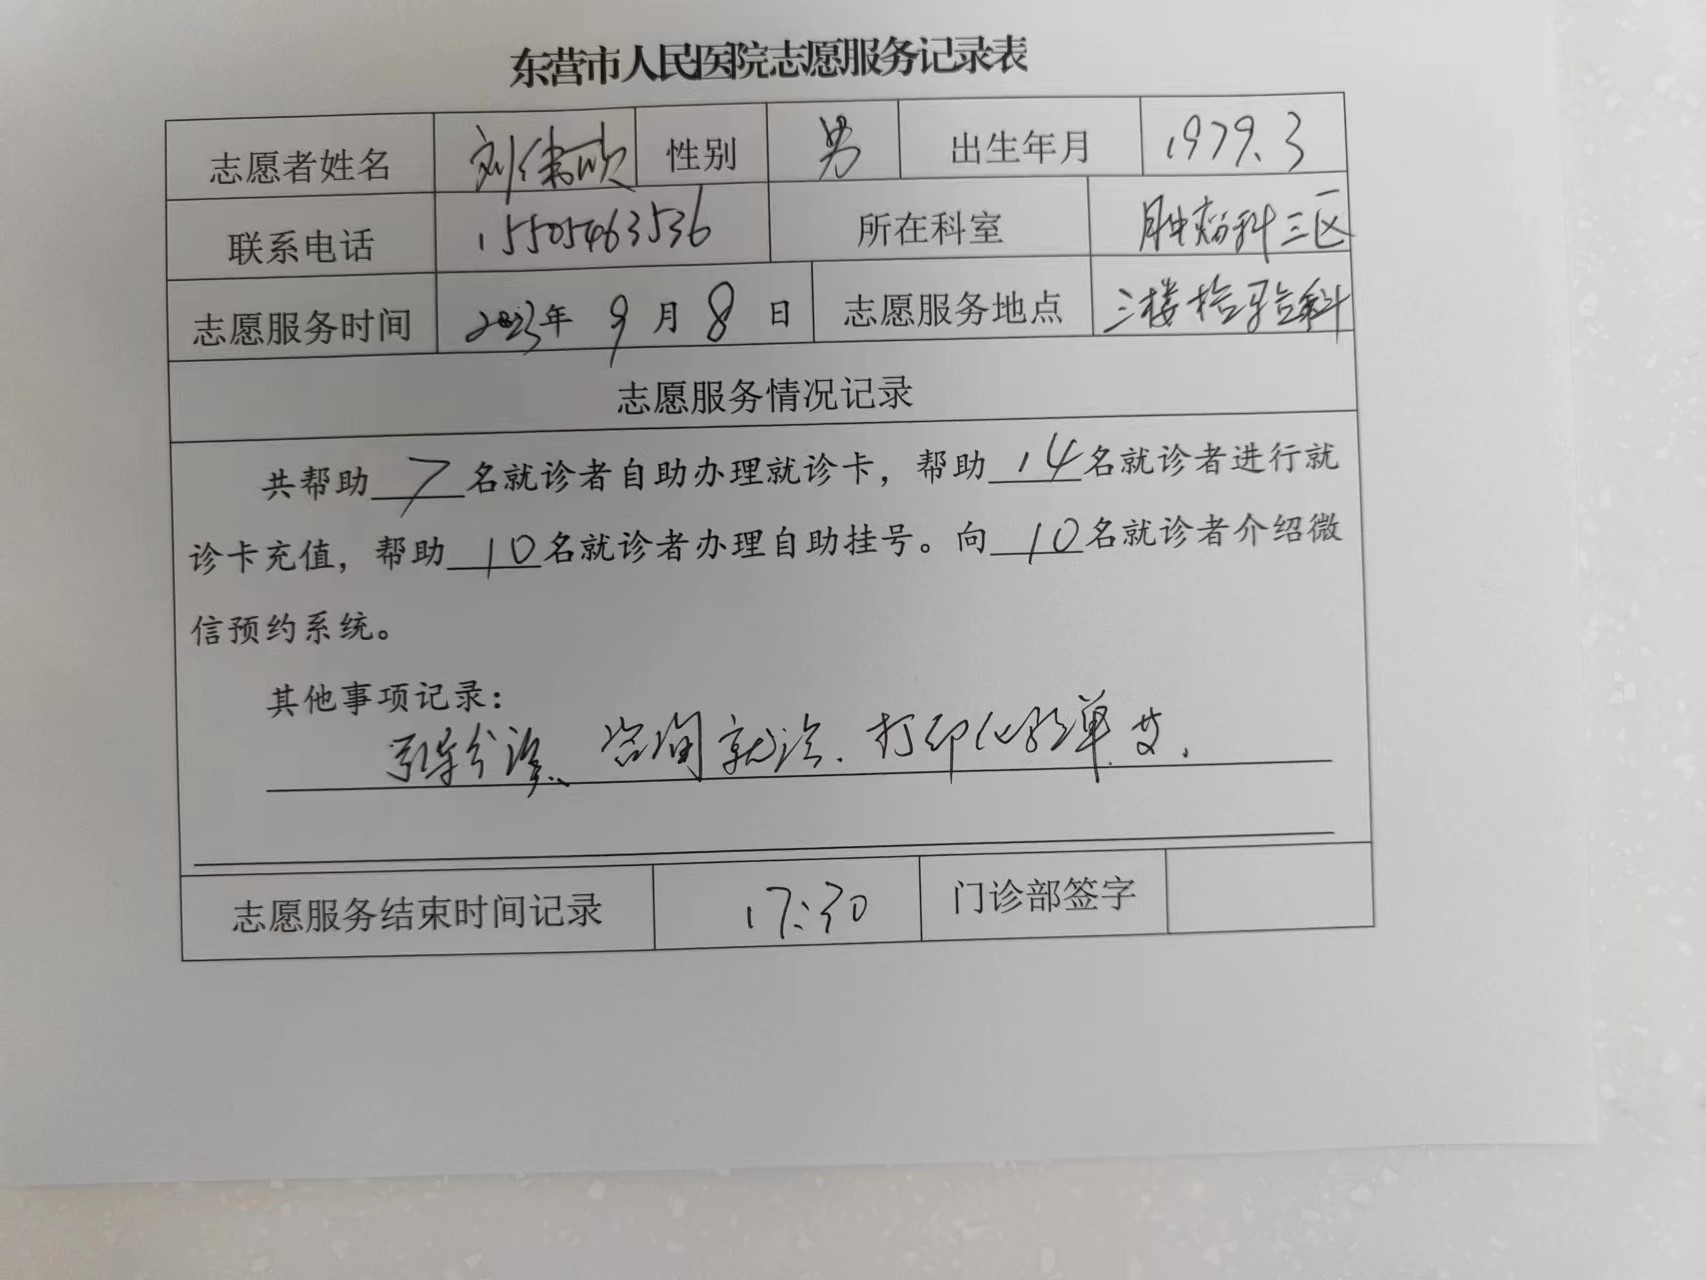 东营市人民医院志愿服务记录表
志愿者姓名 刘伟欣 性别 男 出生年月 1979.3
联系电话 15505463536 所在科室 肿瘤科三区
志愿服务时间 2023年 9 月 8 日 志愿服务地点 三楼检验科
志愿服务情况记录
共帮助 7 名就诊者自助办理就诊卡，帮助 14 名就诊者进行就
诊卡充值，帮助 10 名就诊者办理自助挂号。向 10 名就诊者介绍微
信预约系统。
其他事项记录：
引导分诊、咨询就诊、打印化验单
志愿服务结束时间记录 17:30 门诊部签字